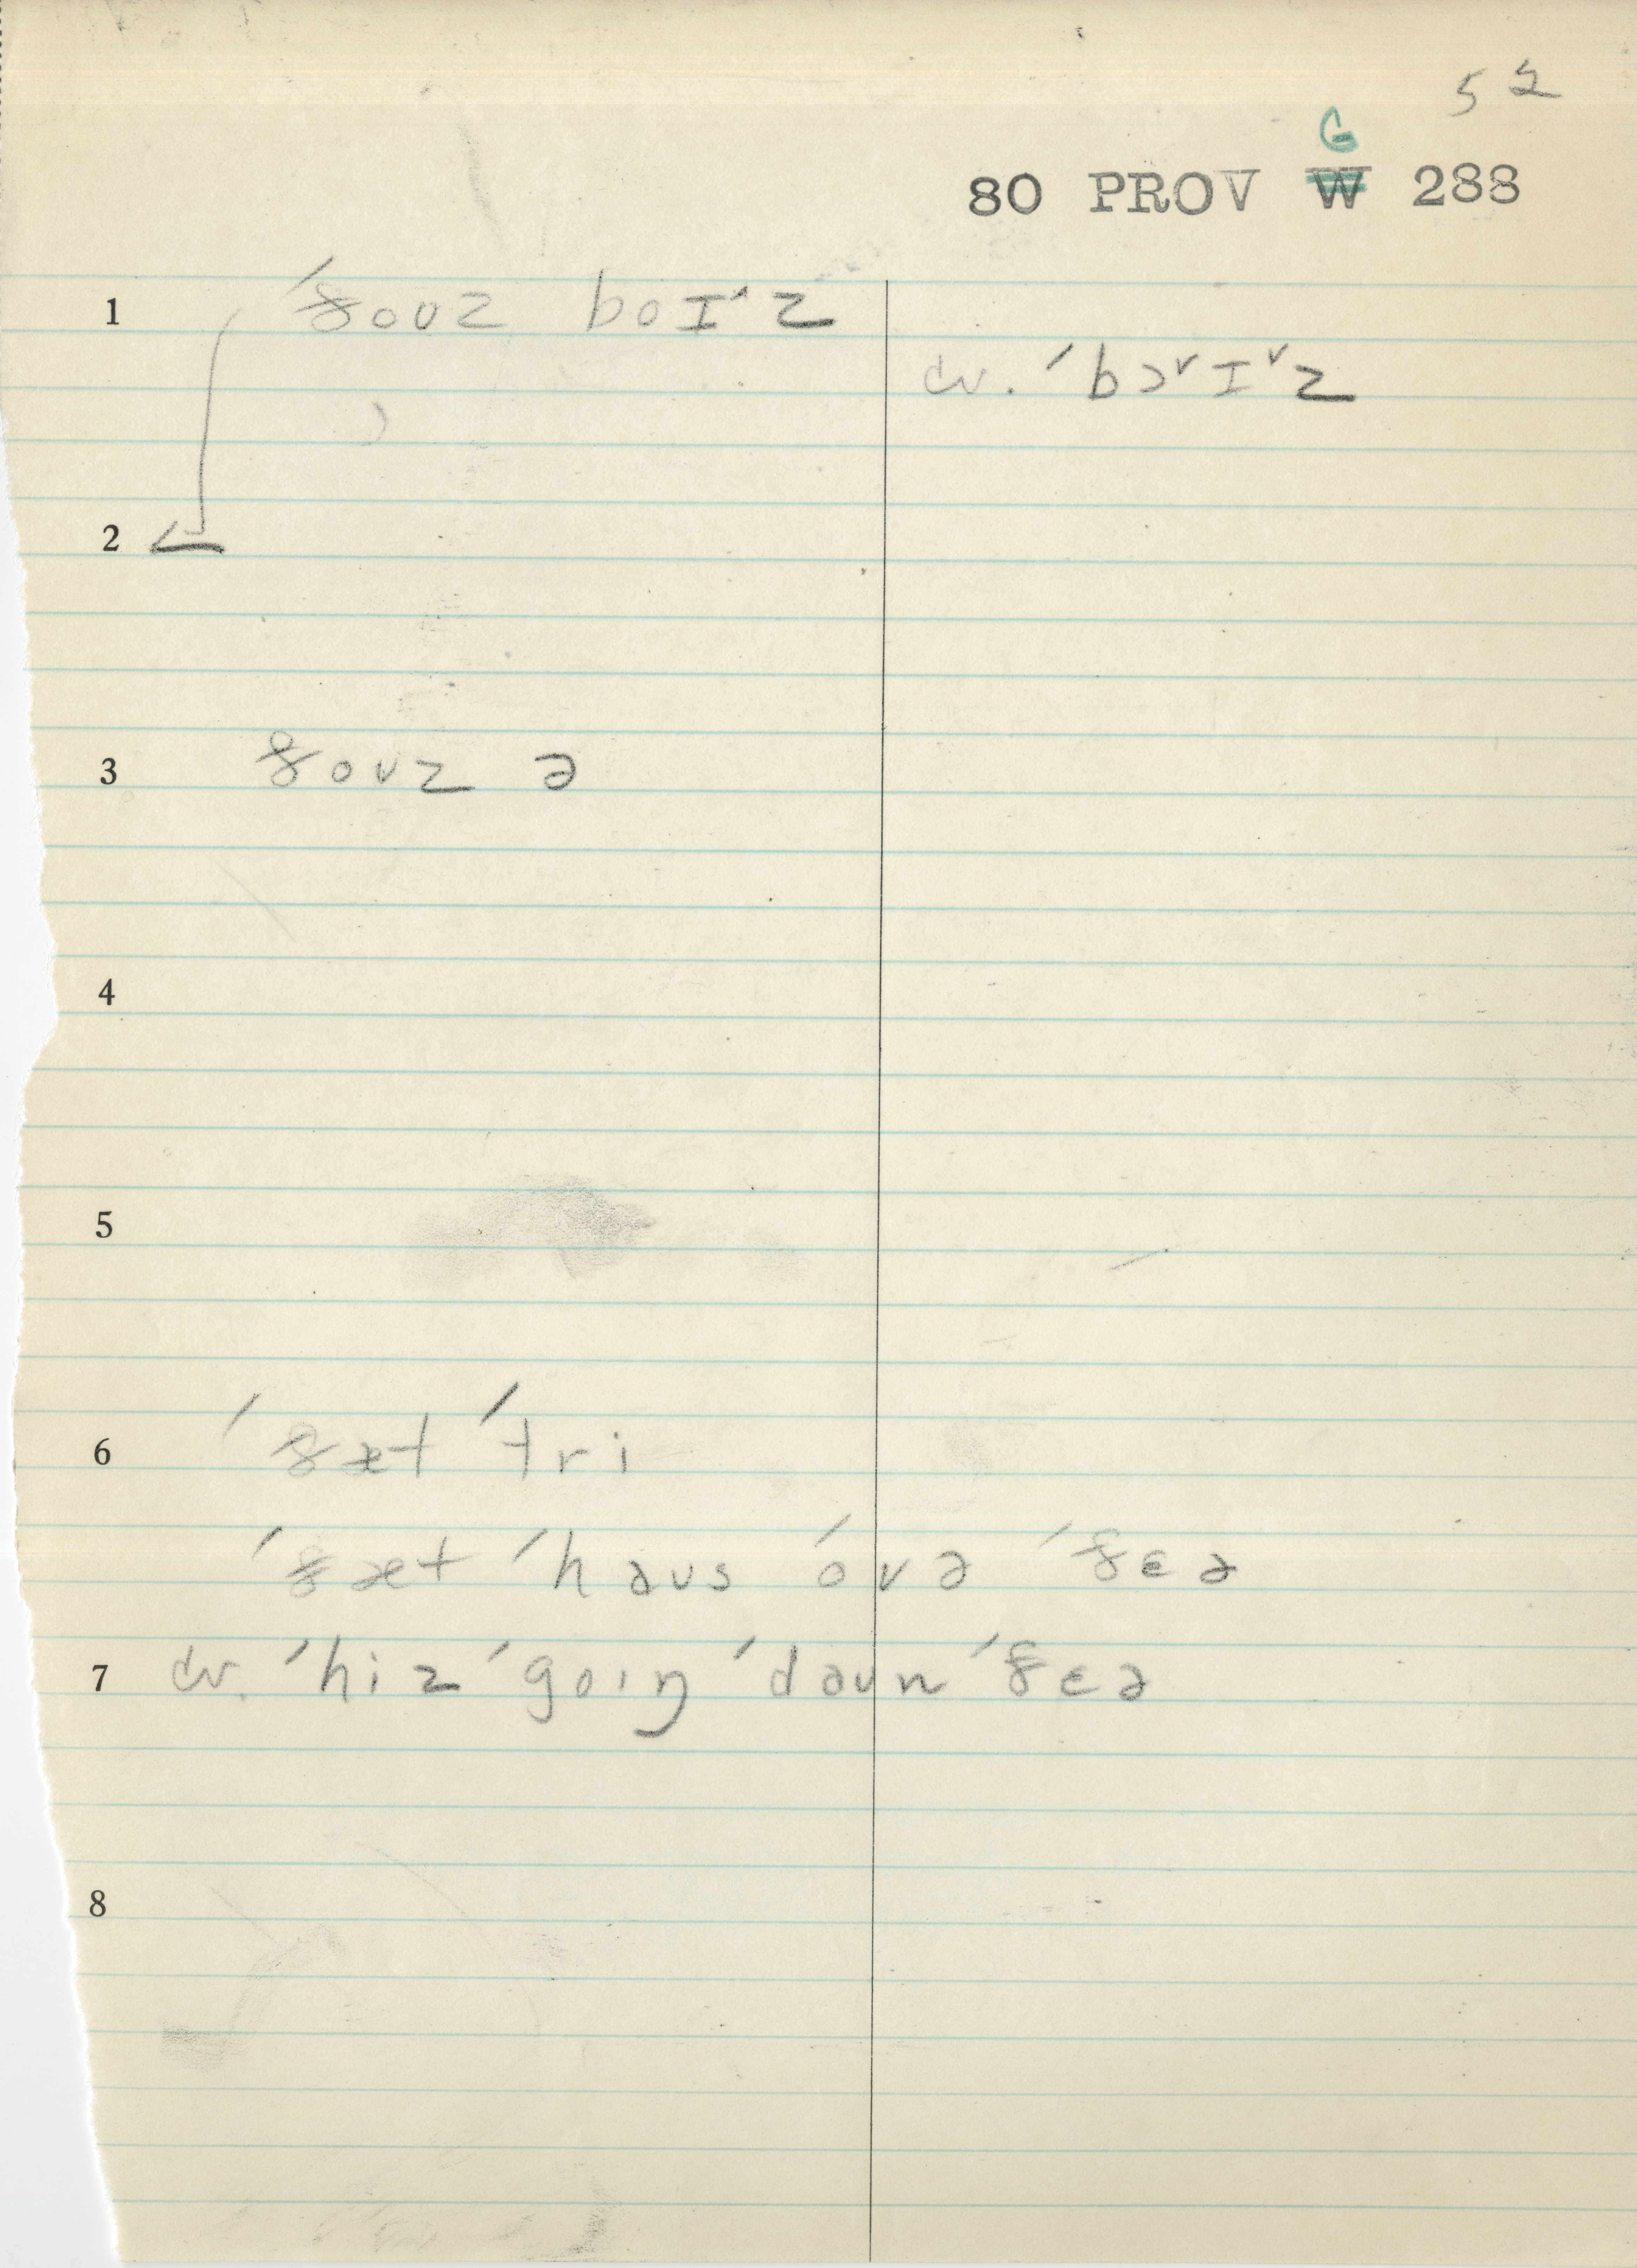 52
G
80 PROV W 288
1 ˈðoʊz boɪ˄z
cv. ˈbɔ˅ɪ˅z
2
3 ðoʊz ə
4
5
6 ˈðæt ˈtri
ˈðæt ˈhaʊs ˈovə ˈðɛə
7 cv. ˈhiz ˈgoɪŋ ˈdaʊn ˈðɛə
8